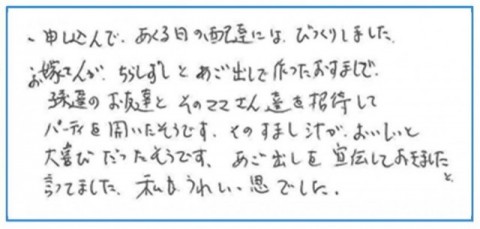 、申し込んで、あくる日の配達には、びっくりしました。
お嫁さんが、ちらしずしとあご出しで作ったおすましで、
孫達のお友達とそのママさん達を招待して
パーティを開いたそうです。そのすまし汁が、おいしいと
大喜びだったそうです。あご出しを宣伝しておきましたと
言ってました。私もうれしい思いでした。